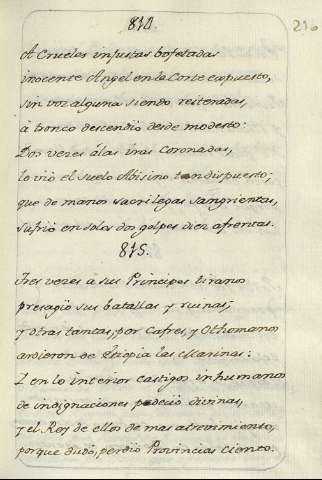 814.
210
A Crueles injustas bofetadas
inocente Angel en la Corte expuesto,
sin voz alguna siendo reiteradas,
á tronco descendió desde modesto:
Dos veces á las iras Coronadas,
lo vió el suelo Abisino tan dispuesto;
que de manos sacrilegas sangrientas,
sufrió en solos dos golpes diez afrentas.
815.
Tres veces á sus Principes tiranos
presagió sus batallas y ruinas,
y otras tantas, por Cafres, y Othomanos
ardieron de Etiopia las Marinas:
I en lo interior castigos inhumanos
de indignaciones padeció divinas,
y el Rey de ellos de mas atrevimiento,
porque dudó, perdió Provincias Ciento.